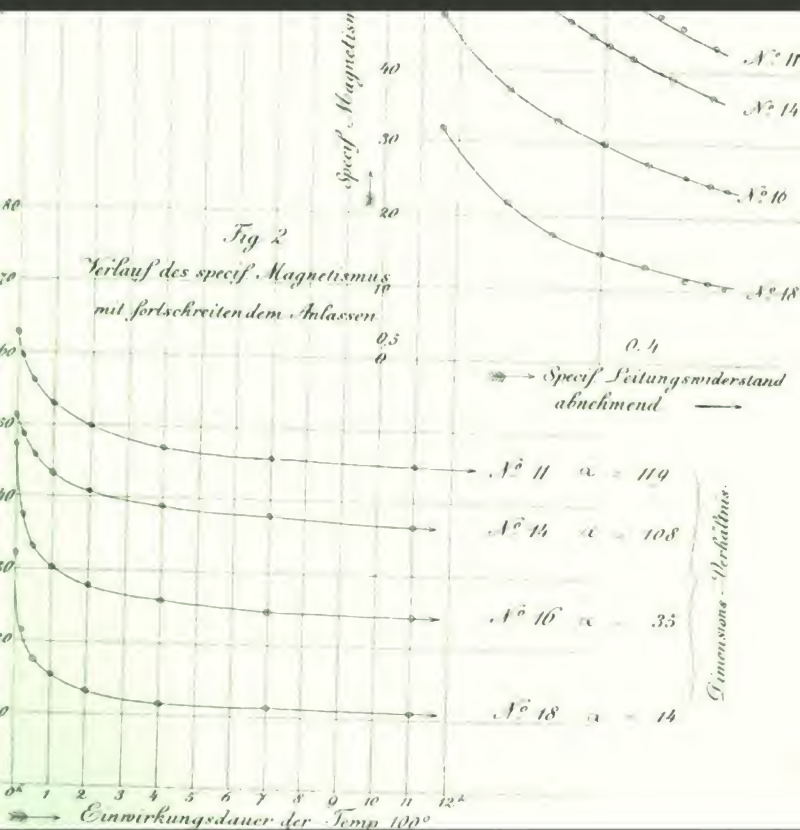 40
30
20
10
0,5
0
0,4
Specif Magnetism
Nº 11
Nº 14
Nº 16
Nº 18
Specif Leitungswiderstand
abnehmend
Fig 2
Verlauf des specif Magnetismus
mit fortschreitendem Anlassen
80
70
60
50
40
30
20
10
Nº 11 α = 119
Nº 14 α = 108
Nº 16 α = 35
Nº 18 α = 14
Dimensions-Verhältnis.
0ʰ 1 2 3 4 5 6 7 8 9 10 11 12ʰ
Einwirkungsdauer der Temp 100°